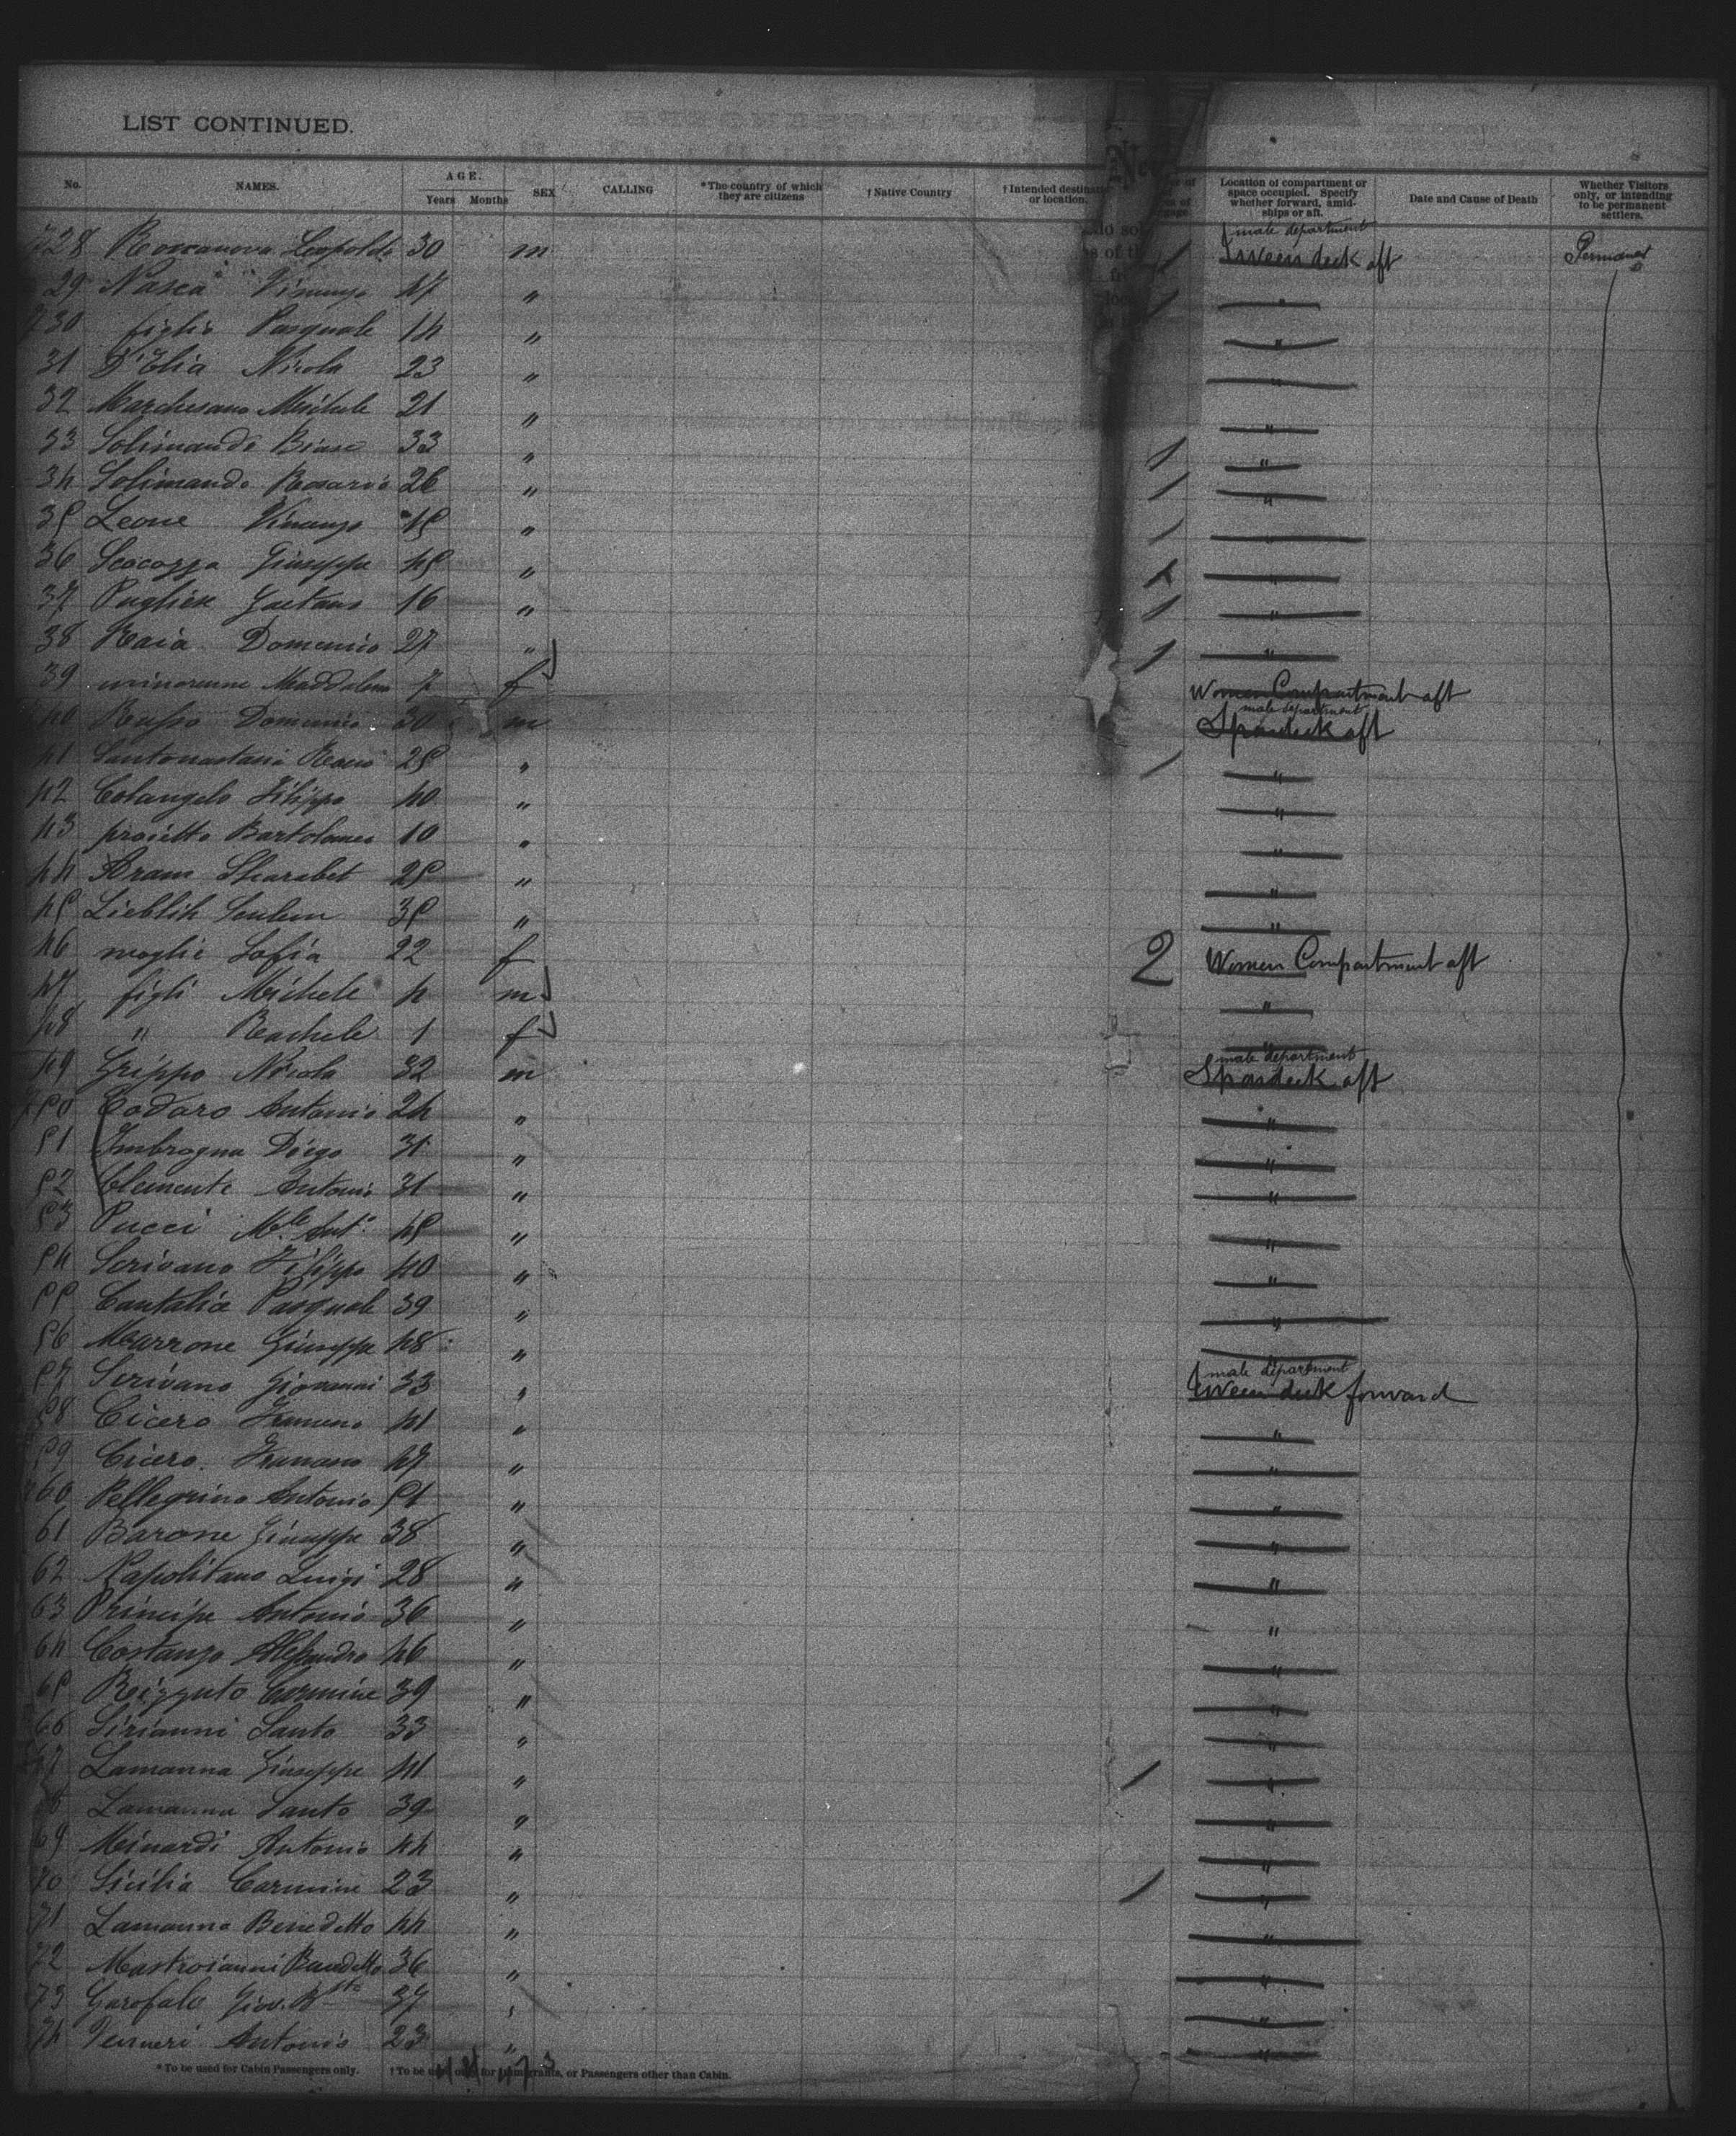 LIST CONTINUED.
No. NAMES. AGE. Years Months SEX CALLING *The country of which they are citizens † Native Country † Intended destination or location. Location of compartment or space occupied. Specify whether forward, amidships or aft. Date and Cause of Death Whether Visitors only, or intending to be permanent settlers.
728 Leopoldo 30 m male department tween deck aft Permanent
29 Nasca Vincenzo 47 " "
730 figlio Pasquale 14 " "
31 D'Elia Nicola 23 " "
32 Marchesano Michele 21 " "
33 Solimando Biase 33 " "
34 Solimando Rosario 26 " "
35 Leone Vincenzo 45 " "
36 Scocozza Giuseppe 45 " "
37 Pugliese Gaetano 16 " "
38 Raia Domenico 27 " "
39 minorenne Maddalena 7 f Women Compartment aft
40 Russo Domenico 30 m male department Spardeck aft
41 Santonastasio Rocco 25 " "
42 Colangelo Filippo 40 " "
43 proietto Bartolomeo 10 " "
44 Aram Sharabet 25 " "
45 Lieblih Sculem 35 " "
46 moglie Sofia 22 f 2 Women Compartment aft
47 figli Michele 4 m "
48 " Rachele 1 f "
49 Grippo Nicola 32 m male department Spardeck aft
750 Codaro Antonio 24 " "
51 Imbrogna Diego 31 " "
52 Clemente Antonio 31 " "
53 Pucci M.le Ant.o 45 " "
54 Scrivano Filippo 40 " "
55 Cantalice Pasquale 39 " "
56 Marrone Giuseppe 48 " "
57 Scrivano Giovanni 33 " male department tween deck forward
58 Cicero Francesco 41 " "
59 Cicero Francesco 47 " "
760 Pellegrino Antonio 51 " "
61 Barone Giuseppe 38 " "
62 Napolitano Luigi 28 " "
63 Principe Antonio 36 " "
64 Costanzo Alessandro 46 " "
65 Rizzuto Carmine 39 " "
66 Sirianni Santo 33 " "
67 Lamanna Giuseppe 41 " "
68 Lamanna Santo 39 " "
69 Minardi Antonio 44 " "
70 Sicilia Carmine 23 " "
71 Lamanna Benedetto 44 " "
72 Mastroianni Benedetto 36 " "
73 Garofalo Giov. B.sta 37 " "
74 Antonio 23 " "
* To be used for Cabin Passengers only. † To be used only for Immigrants, or Passengers other than Cabin.